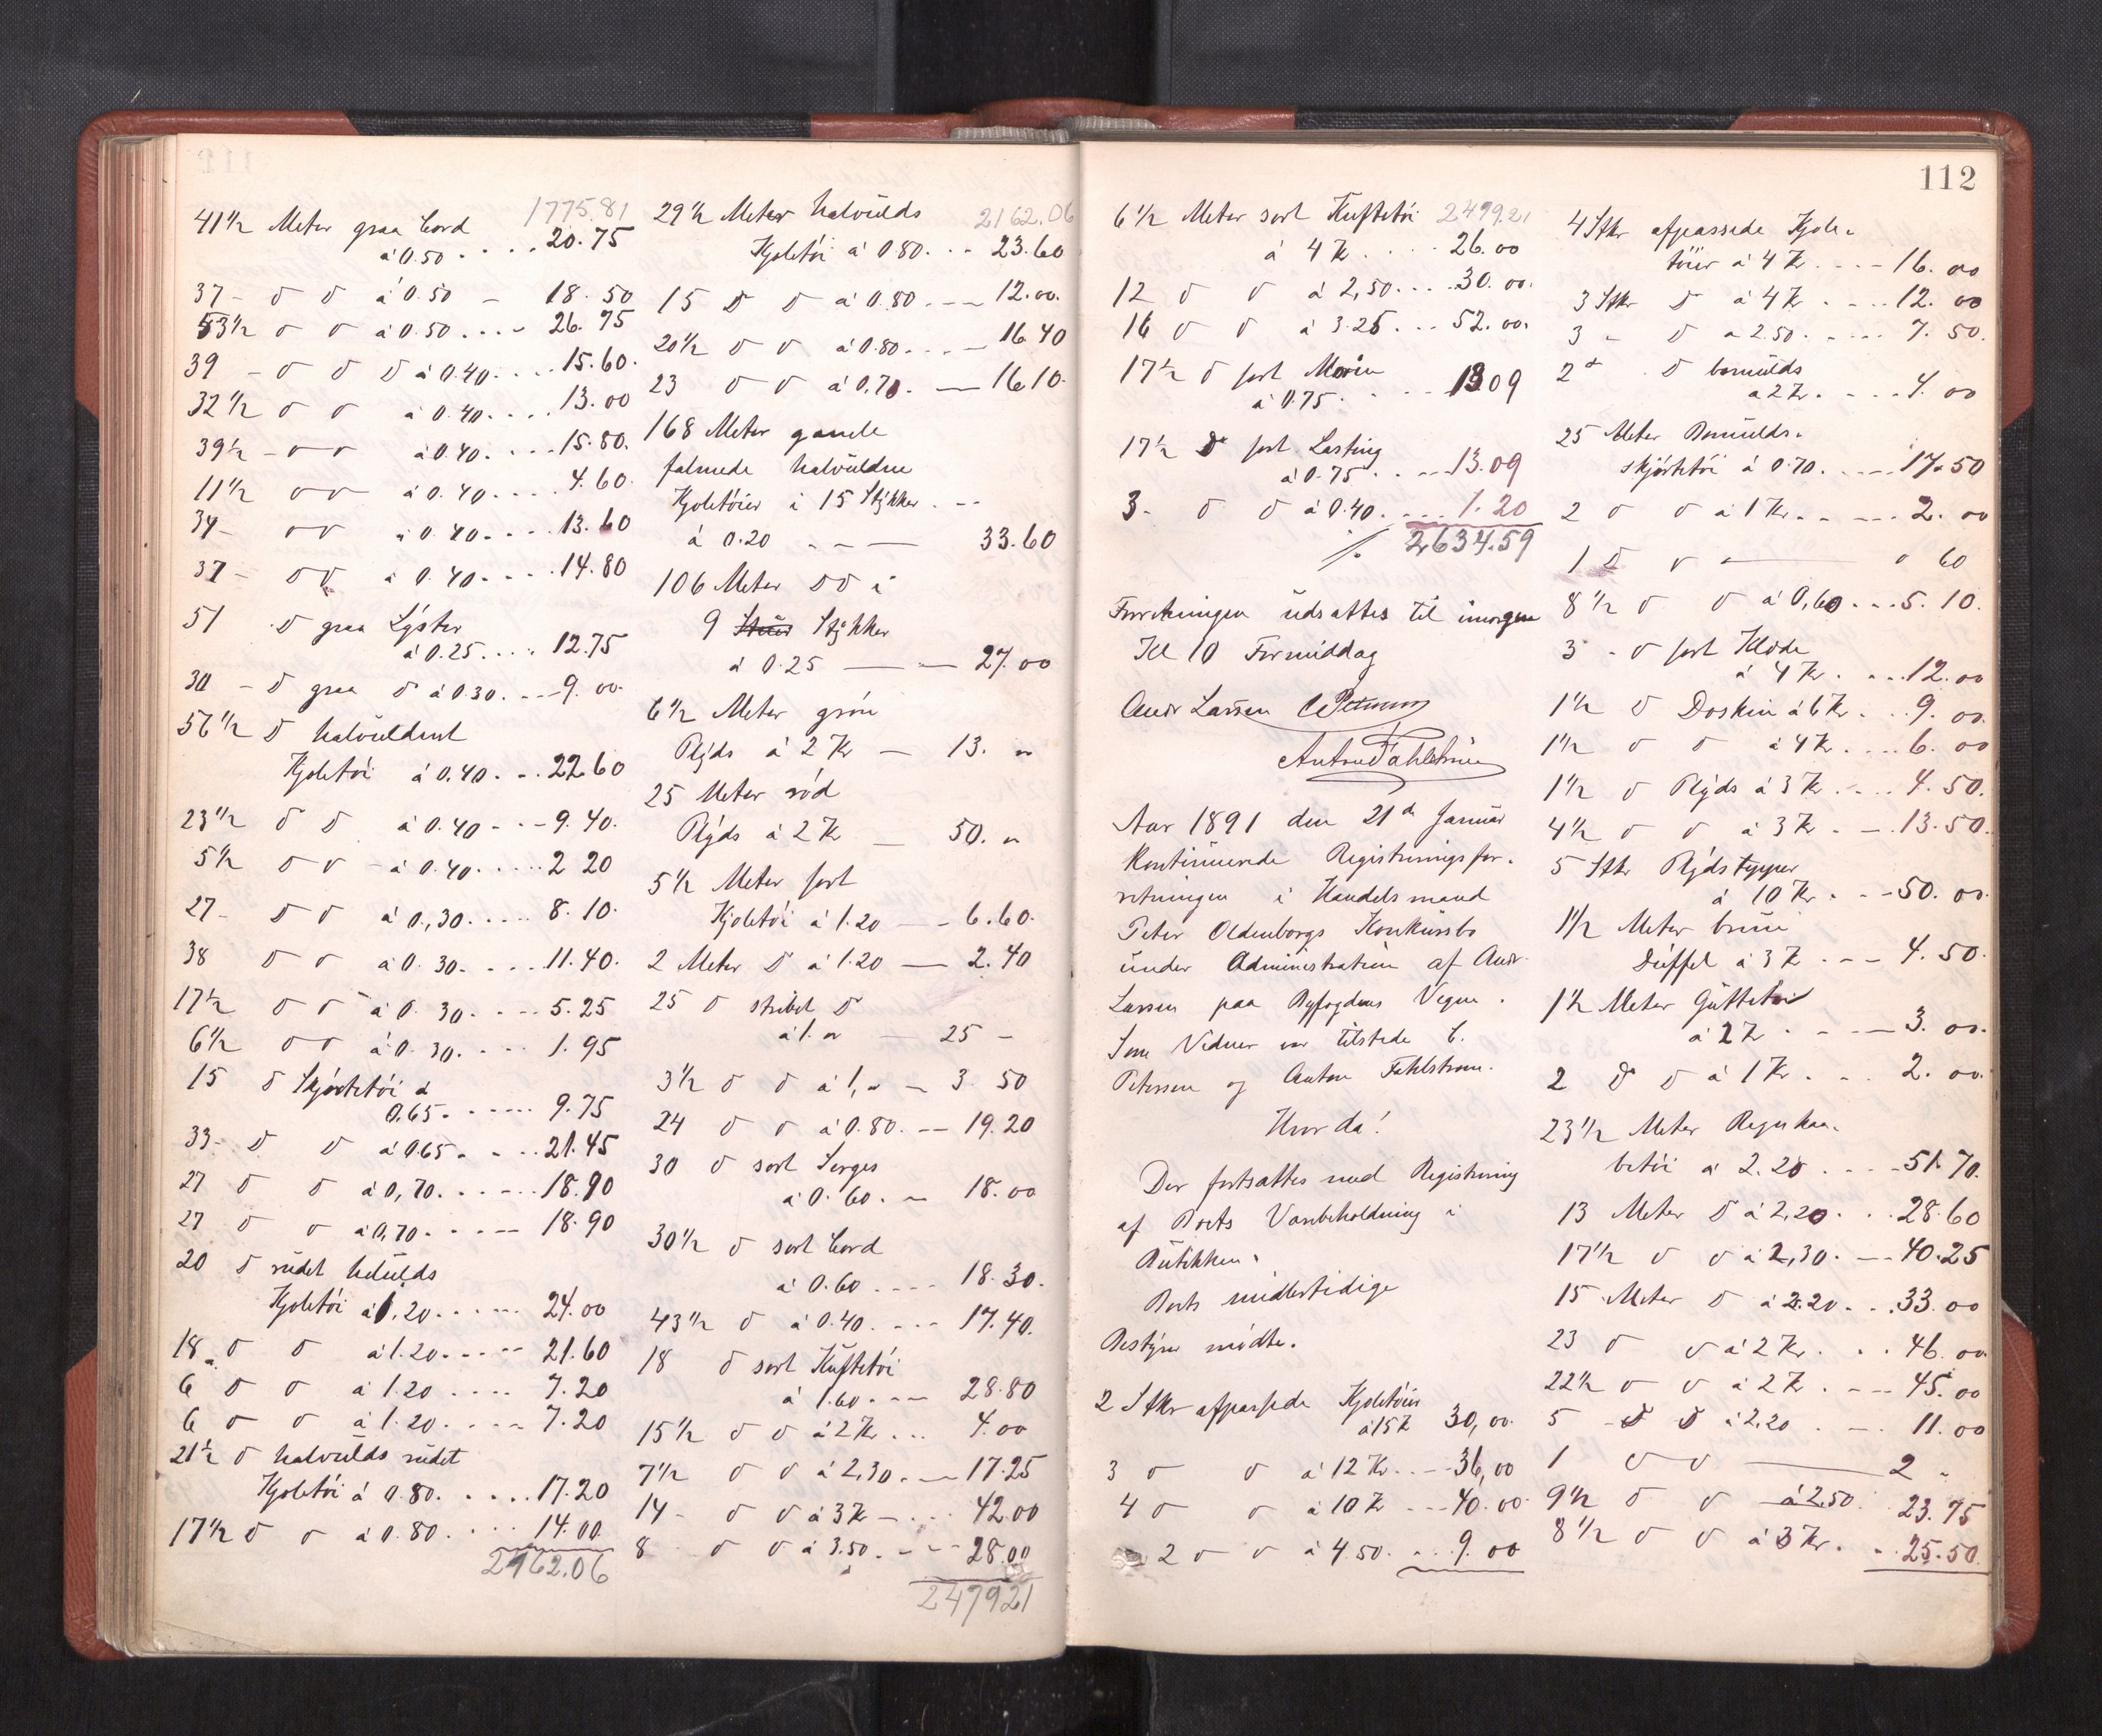 1775.81
41 1/2 Meter graa Cord
à 0.50 . . . . 20.75
37 - D D à 0.50 - 18.50
53 1/2 D D à 0.50 . . . - 26.75
39 - D D D à 0.40 . . . . 15.60.
32 1/2 D D à 0.40 . . . . 13.00
39 1/2 - D D à 0.40 . . . . 15.80.
11 1/2 D D à 0.40 . . . . 4.60.
34 - D D à 0.40 . . . . 13.60
37 - D D à 0.40 . . . . 14.80
51 D graa Lyster
à 0.25 . . . . 12.75
30 - D graa D à 0.30 . . . 9.00.
56 1/2 D halvuldent
Kjoletöi à 0.40 . . 22.60
23 1/2 D D à 0.40 - . . - 9.40.
5 1/2 D D - à 0.40 . . . . . 2 20
27 - D D à 0,30 . . . . 8.10.
38 D D à 0.30 . . . . 11.40.
17 1/2 D D à 0.30 . . . . 5.25
6 1/2 D D à 0.30 . . . . 1.95
15 D Skjörtetöi à
0.65 . . . . 9.75
33 - D D à 0.65 . . . . 21.45
27 D D à 0,70 . . . . . 18.90
27 D D à 0,70 . . . . 18.90
20 D rudet heluulds
Kjoletöi à 1,20 . . . . 24.00
18 D D à 1.20 . . . . 21.60
6 D D à 1.20 . . . . 7.20
6 D D à 1.20 . . . . 7.20
21 1/2 D halvulds rudet
Kjoletöi à 0.80 . . . . . 17.20
17 1/2 D D à 0.80 . . . . 14.00
2162.06
2162.06
29 1/2 Meter halvulds
Kjoletöi à 0.80 . . . 23.60
15 D D à 0.80 . . . 12.00.
20 1/2 D D à 0.80 . . . 16.40
23 D D à 0,70 . - 16 10.
168 Meter gamle
falmede halvuldne
Kjoletöier i 15 Stykker . - -
à 0.20 - - - 33.60
106 Meter D D i
9 Stykker
à 0.25 - - 27.00
6 1/2 Meter grön
Plyds à 2 Kr - 13. "
25 Meter röd
Plyds à 2 Kr - 50. "
5 1/2 Meter sort
Kjoletöi à 1.20 - - 6.60.
2 Meter D à 1.20 - 2.40
25 D stribet D
à 1. " - 25 -
3 1/2 D D à 1, " - 3 50
24 D D à 0.80. - - 19.20
30 D sort Serges
à 0.60. - 18.00
30 1/2 D sort Cord
à 0.60 . . . . 18.30.
43 1/2 D à 0.40 . . . 17.40.
18 D sort Kuftetöi
à 1.60. . - - 28.80
15 1/2 D D à 2 Kr . . . 4.00
7 1/2 D D à 2,30 . - 17.25
14 - D D à 3 Kr - . . . 42.00
8 D D à 3.50. - - - 28.00
247921
112
6 1/2 Meter sort Kuftetöi 2479.21
à 4 Kr . . . . 26.00
12 D D à 2,50 . . . . 30.00.
16 D D à 3.25 . . . 52.00.
17 1/2 D sort Morin
à 0.75 . . . . 13 09
17 1/2 D sort Lasting
à 0.75 . . . 13.09
3 - D D à 0.40 . . . . 1.20
./. 2634.59
Forretningen udsattes til imorgen
Kl 10 Formiddag
Andr Larsen C Petersen
Anton Fahlstrøm
Aar 1891 den 21de Januar
kontinuerede Registreringsfor-
retningen i Handelsmand
Peter Oldenborgs Konkursbo
under Administration af Andr.
Larsen paa Byfogdens Vegne.
Som Vidner var tilstede C.
Petersen og Anton Fahlstrøm.
Hvorda!
Der fortsattes med Registrering
af Boets Varebeholdning i
Butikken.
Boets midlertidige
Bestyrer mödte.
2 Stkr afpassede Kjoletöier
à 15 Kr 30,00.
3 D D à 12 Kr . . . 36,00
4 D D à 10 Kr . . . 40.00.
2 D D à 4.50. . . 9.00
4 Stkr afpassede Kjole-
töier à 4 Kr . . - - 16.00
3 Stkr D à 4 Kr . . . . 12.00
3 - D à 2.50. . . . . 7.50.
2 D bomulds
à 2 Kr . . . . 4.00
25 Meter Bomulds-
skjörtetöi à 0.70. . . . 17.50
2 D D à 1 Kr . . - - - 2.00
1 D D - 0 60
8 1/2 D D à 0,60 . . . 5.10.
3 - D sort Klæde
à 4 Kr . . . . 12.00
1 1/2 D Doskin à 6 Kr . . 9.00.
1 1/2 D D à 4 Kr . . . . 6.00
1 1/2 D Plyds à 3 Kr . . . . 4.50.
4 1/2 D D à 3 Kr . - . 13.50.
5 Stkr Plydstepper
à 10 Kr . . - 50.00.
1 1/2 Meter brun
Düffel à 3 Kr . - - 4.50.
1 1/2 Meter Guttetöi
à 2 Kr . - - - 3.00.
2 D D à 1 Kr . . . 2.00.
23 1/2 Meter Regnkaa-
betöi à 2.20 . . . . 51.70.
13 Meter D à 2,20 . . . 28.60
17 1/2 D D à 2,30. - - 40.25
15 Meter D à 2.20 . . . 33.00
23 D D à 2 Kr . . . 46.00
22 1/2 D D à 2 Kr . - - 45.00
5 - D D à 2.20 . - . 11.00
1 D D - 2 -
9 1/2 D D à 2.50 23.75
8 1/2 D D à 3 Kr . . 25.50.